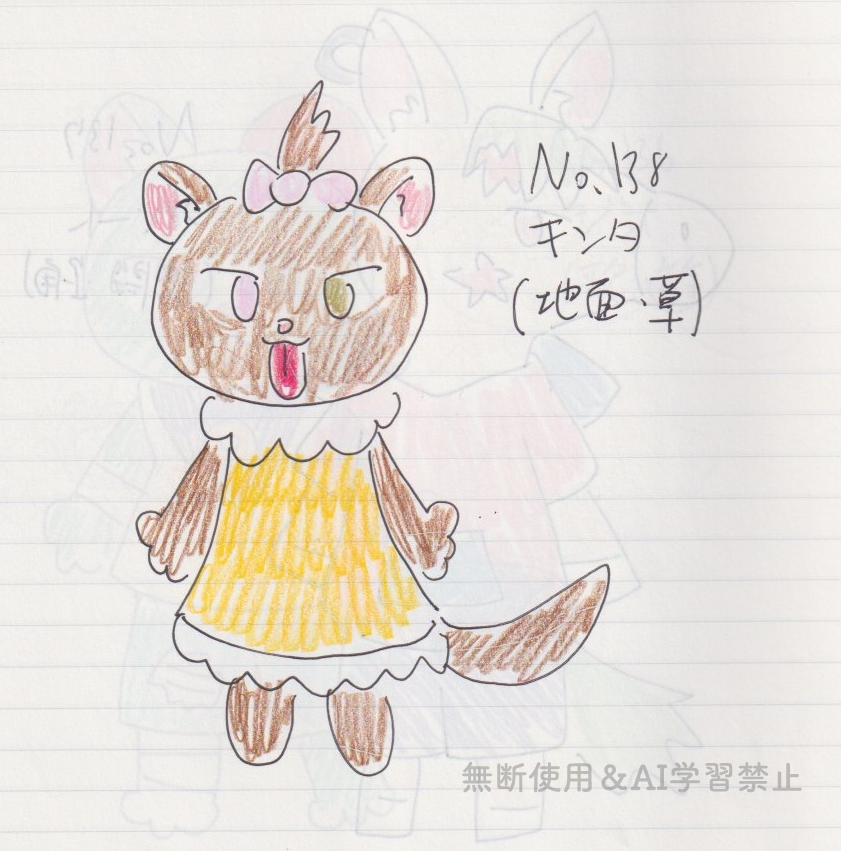 No.138
キンタ
(地面・草)
無断使用&AI学習禁止